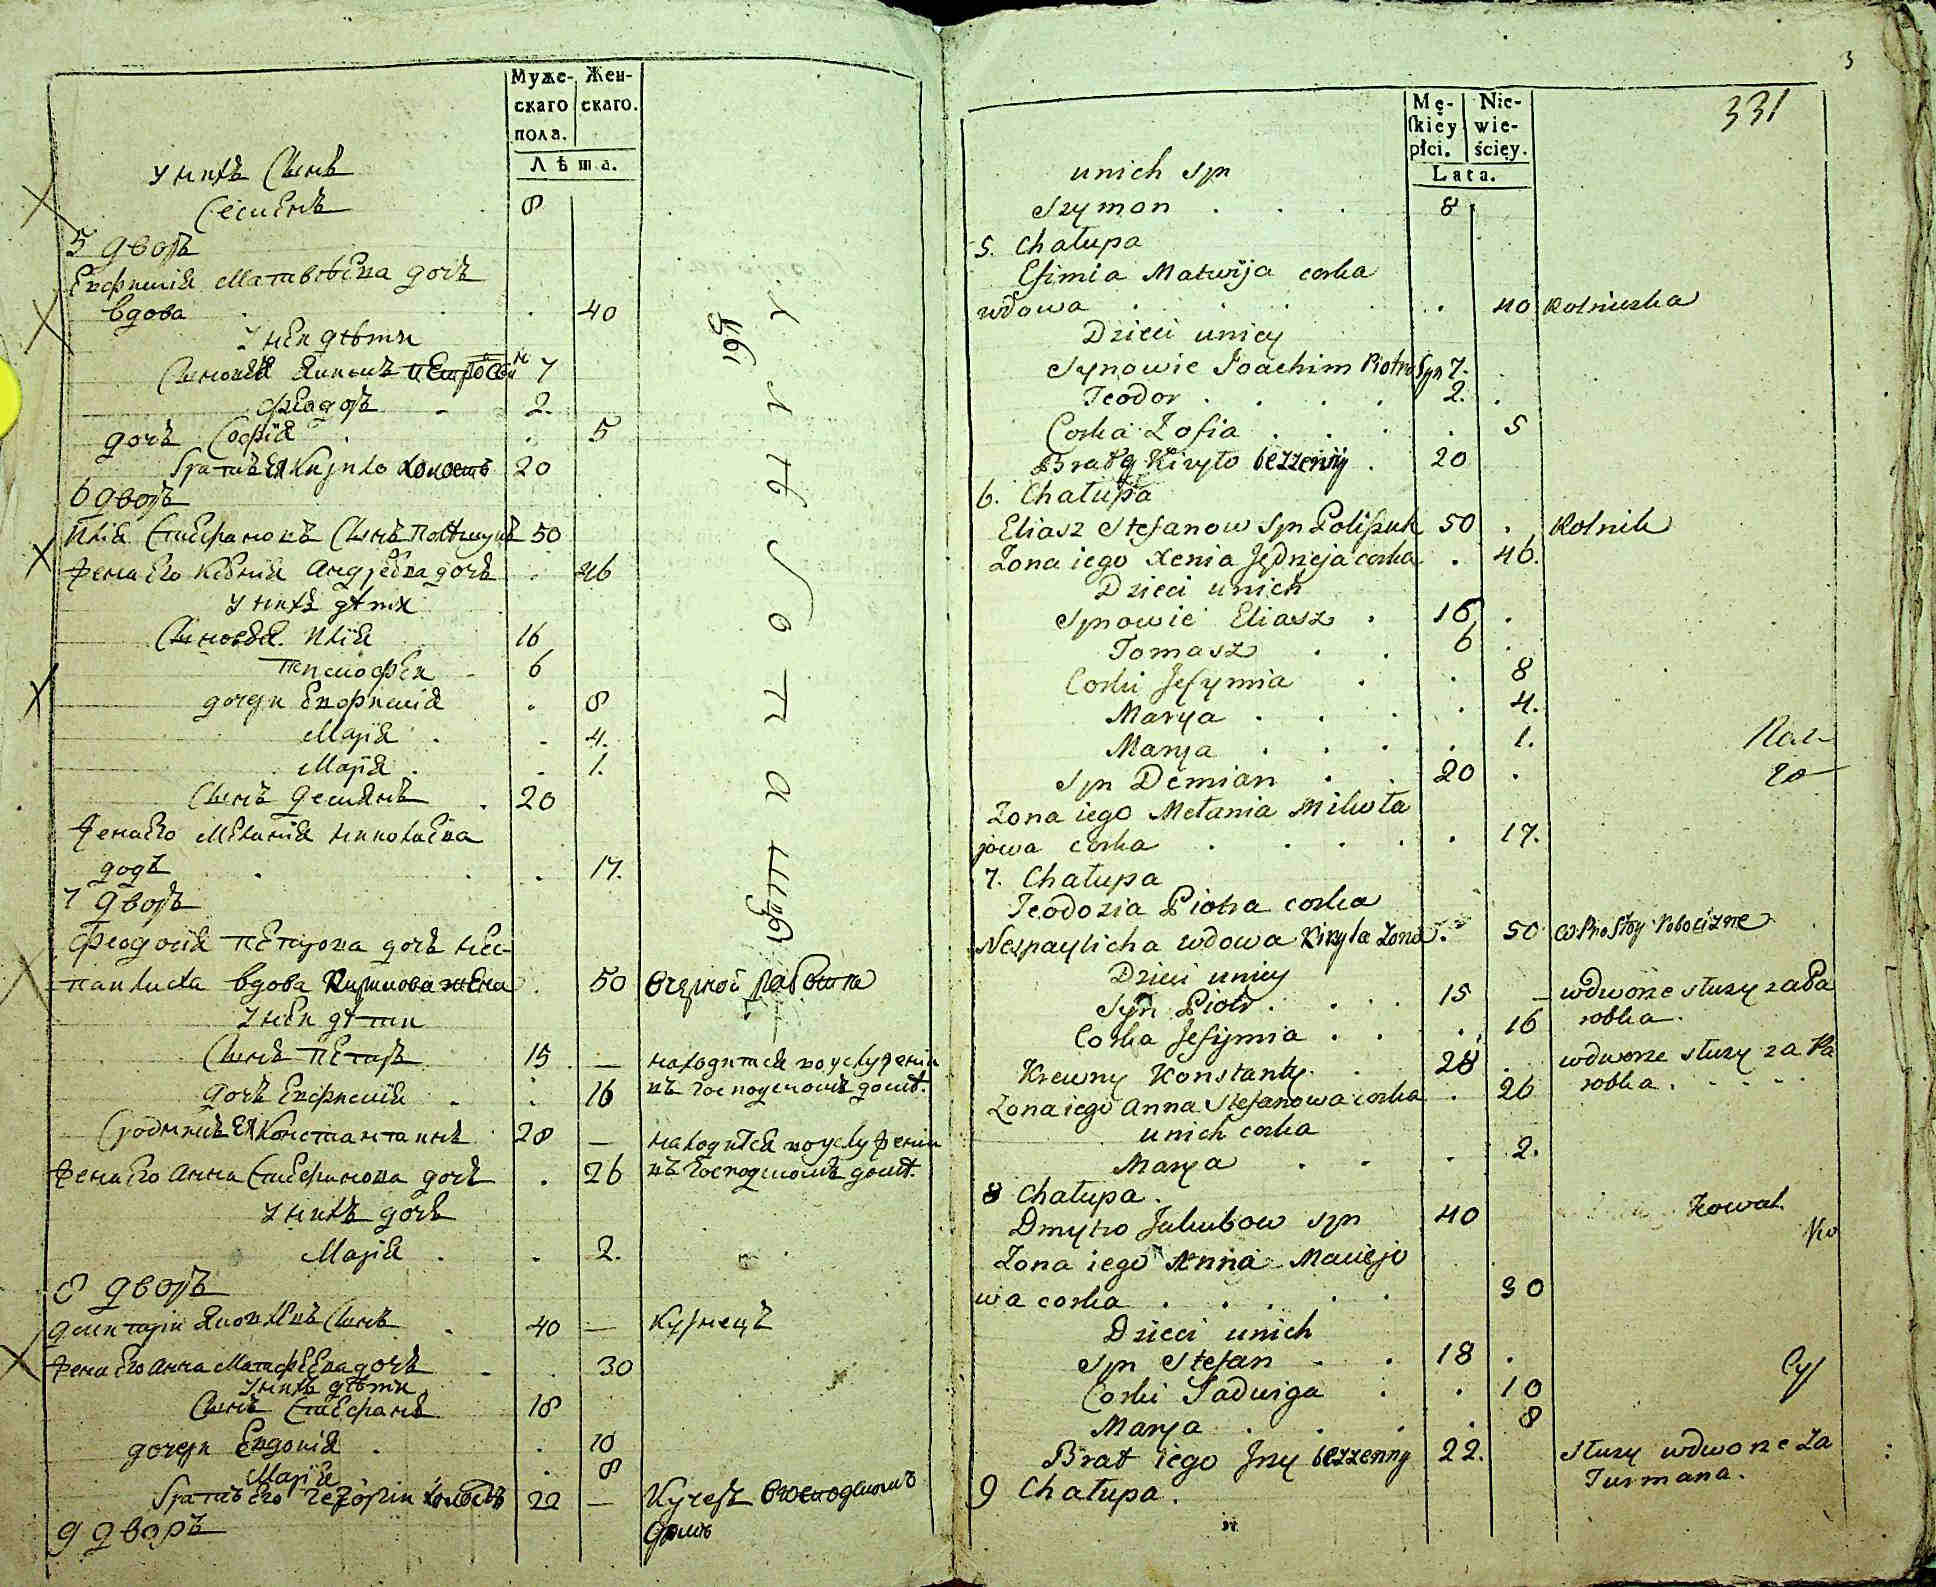 Муже-
скаго
пола.
Жен-
скаго.
Лѣта.
у нихъ Сынъ
Семенъ 8
5 дворъ
Евфимія Матвѣѣва дочь
вдова 40
у неи дѣти
Сыновья Якимъ 7
Феодоръ 2.
дочь Софія 5
братъ ея Кирило холостъ 20
6 дворъ
Илія Стефановъ Сынъ 50
жена Его Ксенія Андреева дочь 46
у нихъ дѣти
Сыновья Илія 16
Тимофеи 6
дочери Евфимія 8
Марія 4.
Марія 1.
Сынъ Демянъ 20
жена Его Меланія Николаева
дочь 17.
7 дворъ
Феодосія Петрова дочь Нес-
паилиха вдова Кирилова жена 50
у неи дѣти
Сынъ Петръ 15 — находится в услуженіи
въ господскомъ домѣ.
дочь Евфимія 16
Сродникъ Ея Константинъ 28 — находится в услуженіи
жена Его Анна Стефанова дочь 26 въ господскомъ домѣ.
у нихъ дочь
Марія 2.
8 дворъ
Димитріи Яковлевъ Сынъ 40 — Кузнецъ
жена Его Анна Матфеева дочь 30
у нихъ дѣти
Сынъ Стефанъ 18
дочери Евдокія 10
Марія 8
братъ его холостъ 22 — Кучеръ
домѣ
9 дворъ
3
331
Mę-
skiey
płci.
Nie-
wie-
ścięy.
Lata.
unich syn
Szymon 8
5. Chałupa
Efimia Matwija corka
wdowa 40 Rolniczka
Dzieci unicy
Synowie Joachim Piotra Syn 7.
Teodor 2.
Corka Zofia 5
Brat ey Kiryło bezzenny 20
6. Chałupa
Eliasz Stefanow Syn Poliszuk 50 Rolnik
Zona iego Xenia Jędrzeja corka 46.
Dzieci unich
Synowie Eliasz 16
Tomasz 6
Corki Jefymia 8
Marya 4.
Marya 1.
Syn Demian 20
Zona iego Mełania Mikoła
jowa corka 17.
7. Chałupa
Teodozia Piotra corka
Nespaylicha wdowa Kiryła Zona 50 w Prostey Robociznie
Dzieci unicy
Syn Piotr 15 — wdworze słuzy za Pa
robka.
Corka Jefymia 16
Krewny Konstanty 28 wdworze słuzy za Pa
robka.
Zona iego Anna Stefanowa corka 26
unich corka
Marya 2.
8 Chałupa.
Dmytro Jakubow syn 40 Kowal.
Zona iego Anna Maciejo
wa corka 30
Dzieci unich
Syn Stefan 18
Corki Jadwiga 10
Marya 8
Brat iego Jrzy bezzenny 22. Słuzy wdworze za
Furmana.
9 Chałupa.